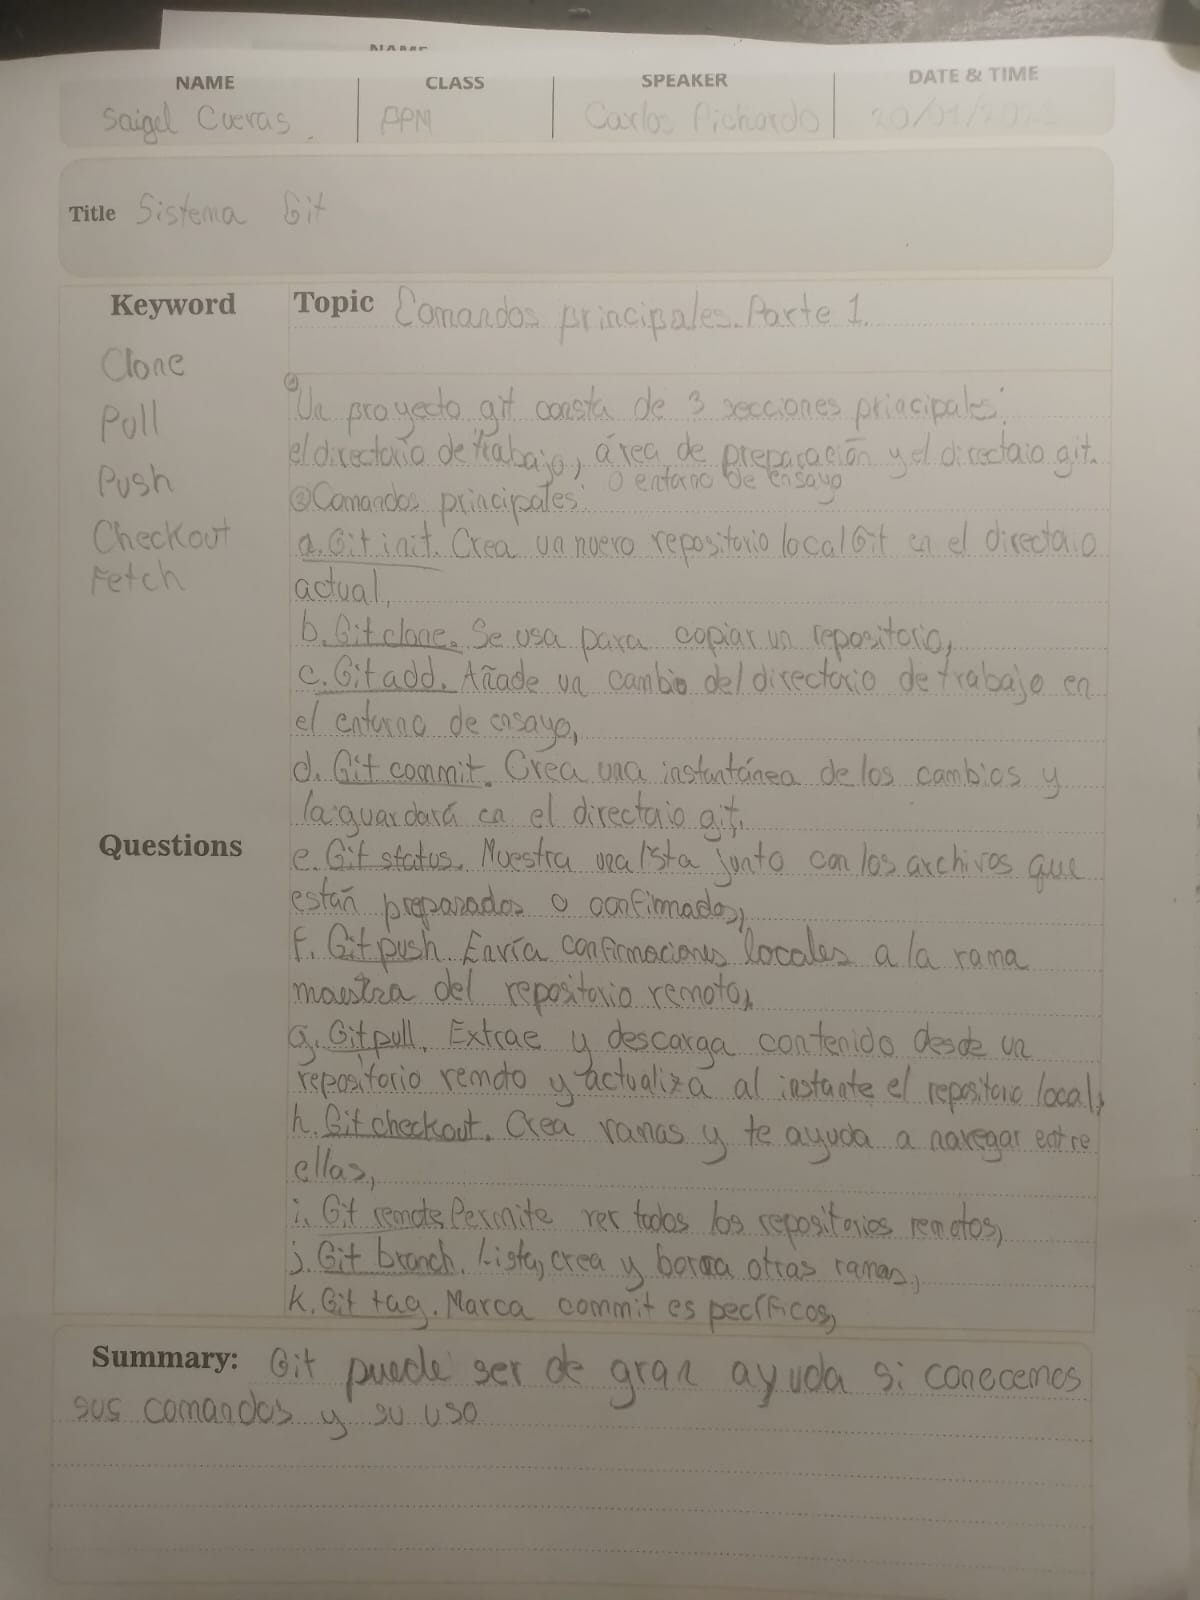 NAME
NAME CLASS SPEAKER DATE & TIME
Saigel Cuevas PPM Carlos Pichardo 20/01/
Title Sistema Git
Keyword Topic Comandos principales. Parte 1.
Clone
Pull
Push
Checkout
Fetch
① Un proyecto git consta de 3 secciones principales:
el directorio de trabajo, área de preparación y el directorio git.
o entorno de ensayo
② Comandos principales:
a. Git init. Crea un nuevo repositorio local Git en el directorio
actual,
b. Git clone. Se usa para copiar un repositorio,
c. Git add. Añade un cambio del directorio de trabajo en
el entorno de ensayo,
d. Git commit. Crea una instantánea de los cambios y
la guardará en el directorio git,
Questions
e. Git status. Muestra una lista junto con los archivos que
están preparados o confirmados,
f. Git push. Envía confirmaciones locales a la rama
maestra del repositorio remoto,
g. Git pull. Extrae y descarga contenido desde un
repositorio remoto y actualiza al instante el repositorio local,
h. Git checkout. Crea ramas y te ayuda a navegar entre
ellas,
i. Git remote Permite ver todos los repositorios remotos,
j. Git branch. Lista, crea y borra otras ramas,
k. Git tag. Marca commit específicos,
Summary: Git puede ser de gran ayuda si conocemos
sus comandos y su uso